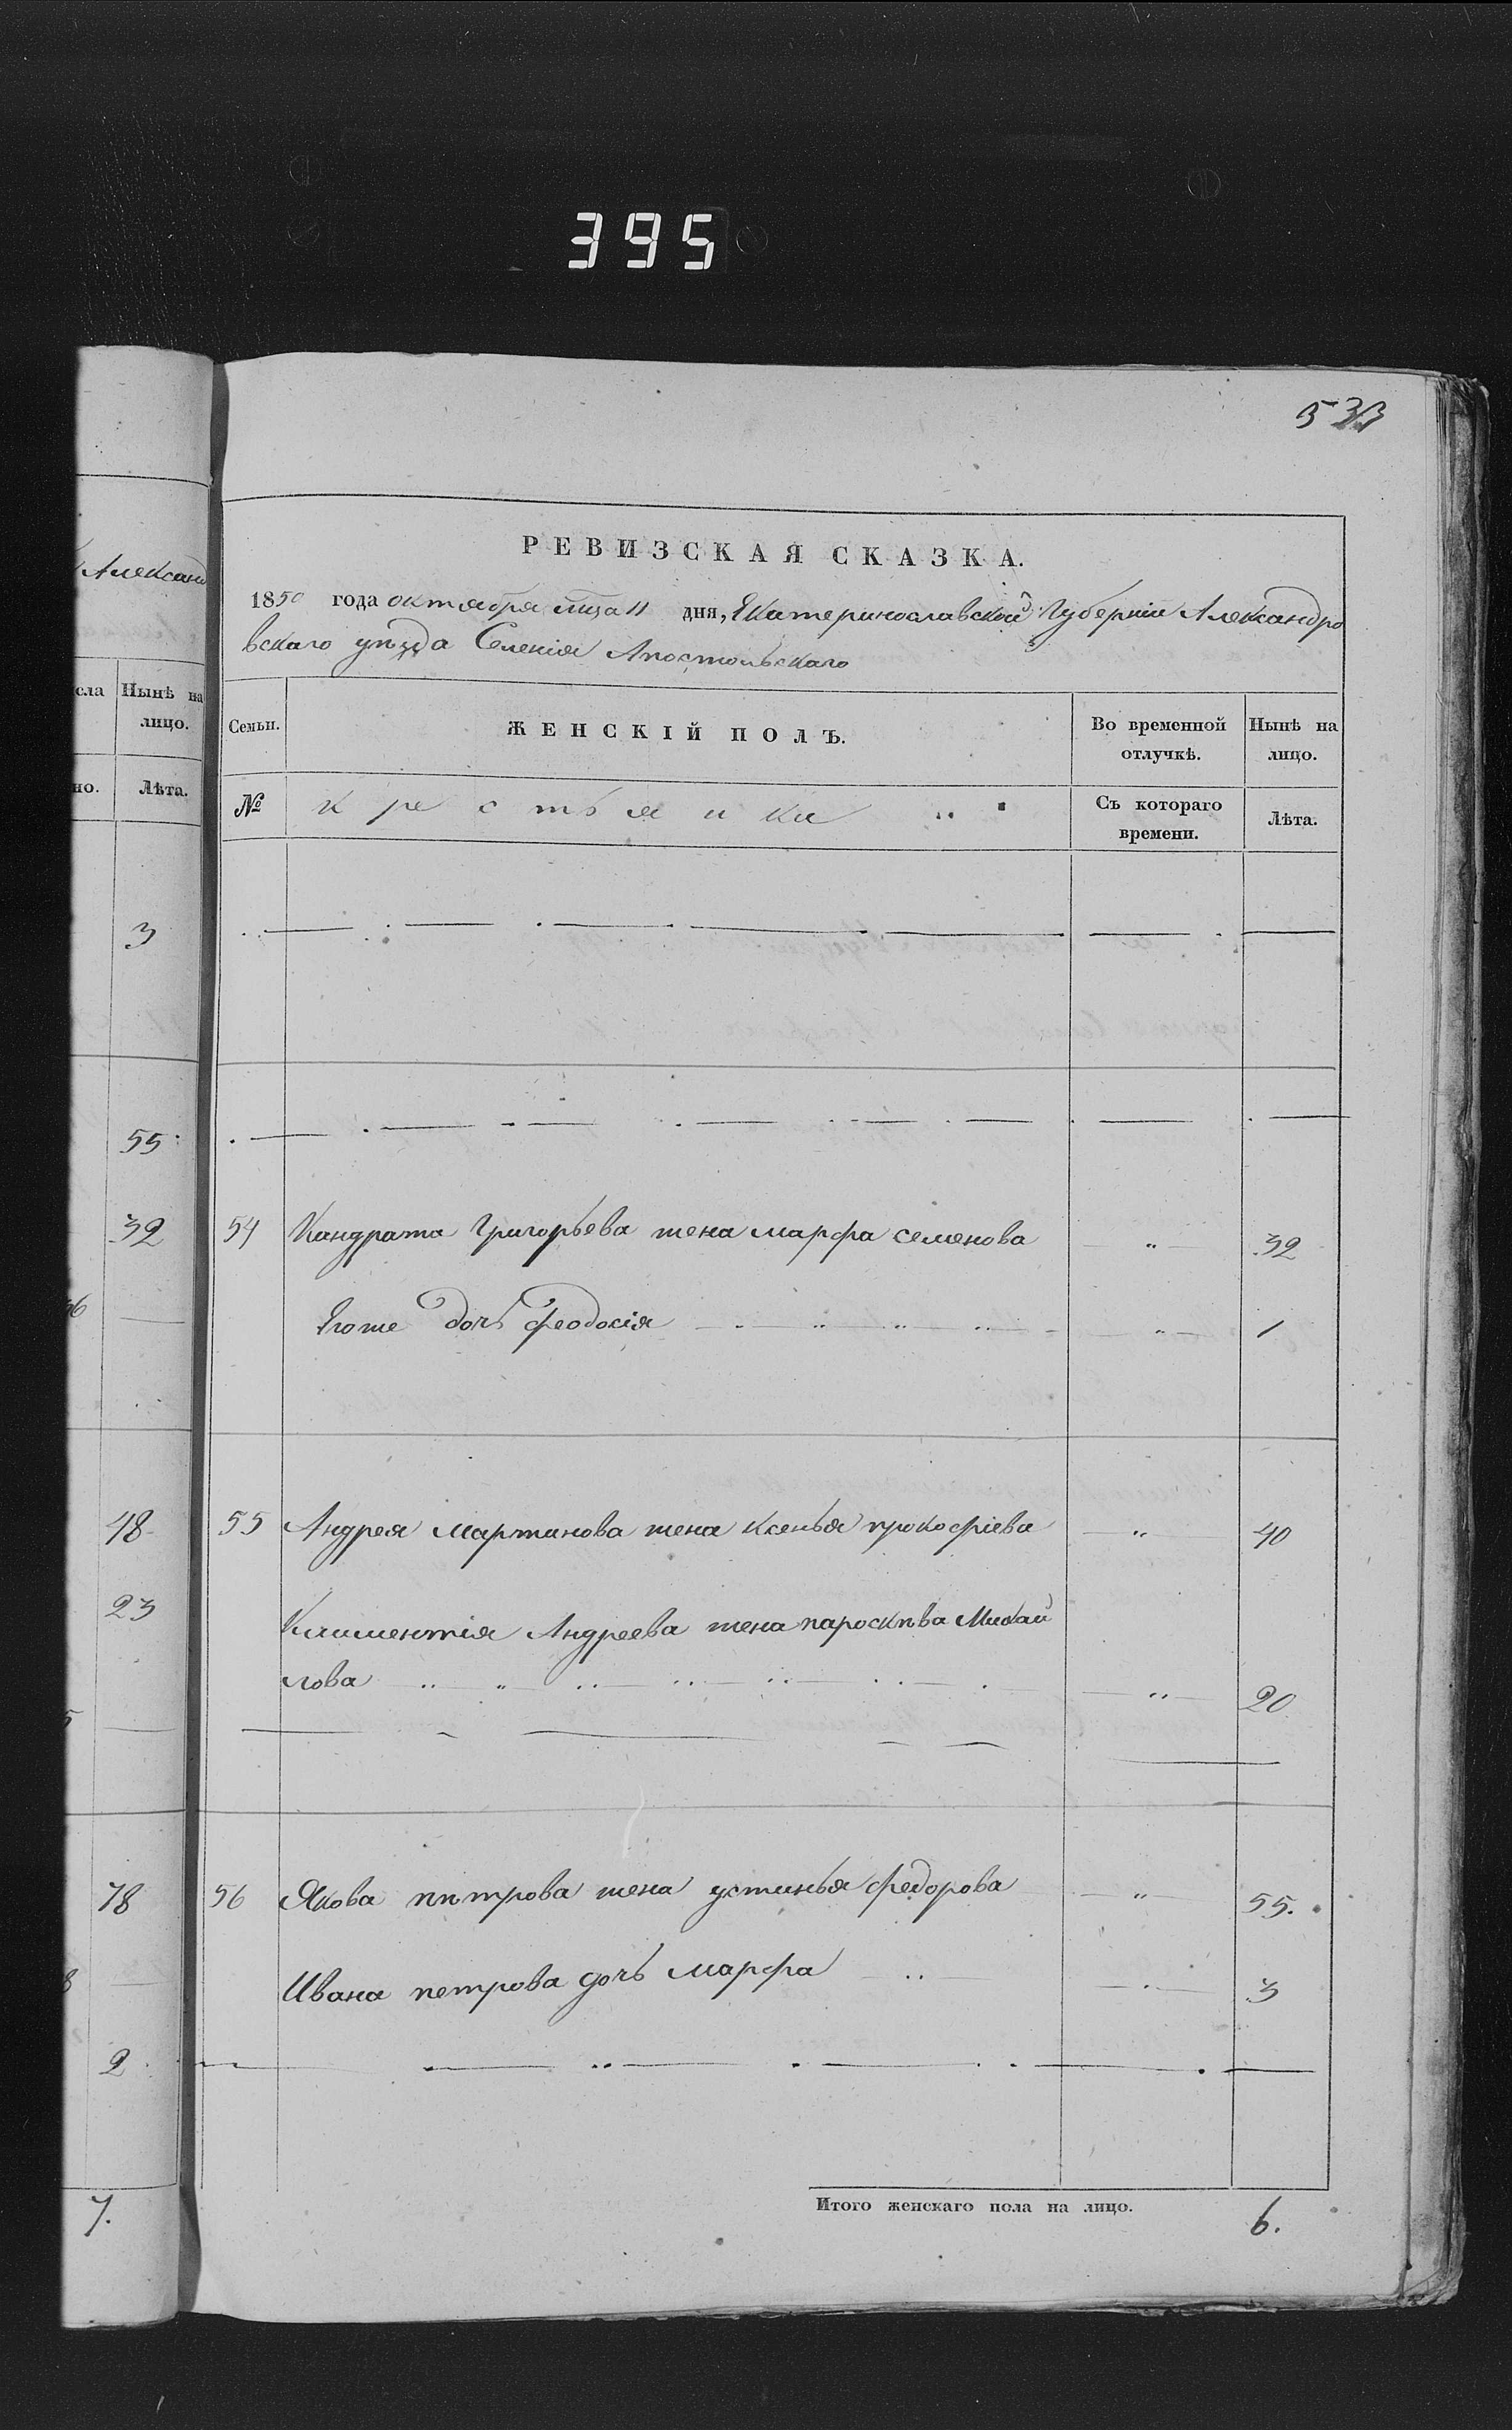 395
533
РЕВИЗСКАЯ СКАЗКА.
1850 года октября мца 11 дня, Екатеринославской Губернии Александро
вскаго уѣзда Селенія Апостольскаго
Александ
сла
Нынѣ на
лицо.
но.
Лѣта.
Семьи.
ЖЕНСКІЙ ПОЛЪ.
Во временной
отлучкѣ.
Нынѣ на
лицо.
№
крестьянки
Съ котораго
времени.
Лѣта.
3
55
32 54 Кандрата Григорьева жена марфа семенова " 32
Егоже дочь феодосія " 1
48 55 Андрея мартинова жена ксенья прокофіева " 40
23
Климентія Андреева жена пароскѣва Михай
лова " 20
78 56 Якова пѣтрова жена устинья федорова " 55.
Ивана петрова дочь марфа 3
2
7.
Итого женскаго пола на лицо. 6.